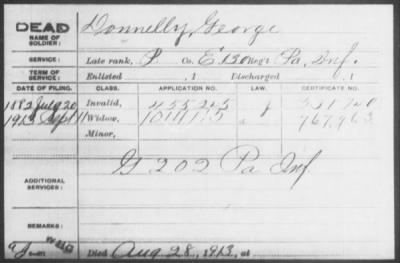 DEAD
NAME OF SOLDIER:
Donnelly, George
SERVICE:
Late rank, P. Co. E, 130 Reg't Pa. Inf.
TERM OF SERVICE:
Enlisted , 1 Discharged , 1
DATE OF FILING. CLASS. APPLICATION NO. LAW. CERTIFICATE NO.
1882 July 20 Invalid,
1913 Sept 11 Widow, 767,963
Minor,
ADDITIONAL SERVICES:
G 202 Pa Inf.
REMARKS:
Died Aug 28, 1913, at